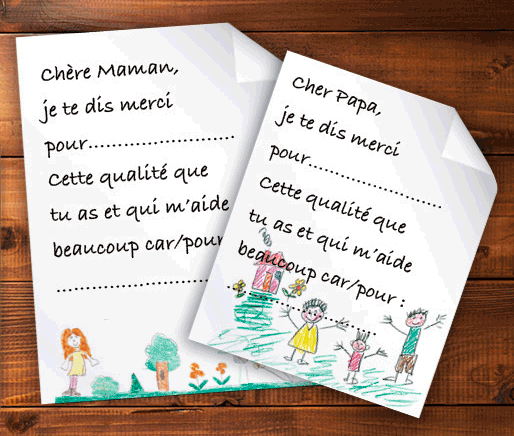 Chère Maman,
je te dis merci
pour..........................
Cette qualité que
tu as et qui m'aide
beaucoup car/pour
............................
Cher Papa,
je te dis merci
pour........................
Cette qualité que
tu as et qui m'aide
beaucoup car/pour :
............................